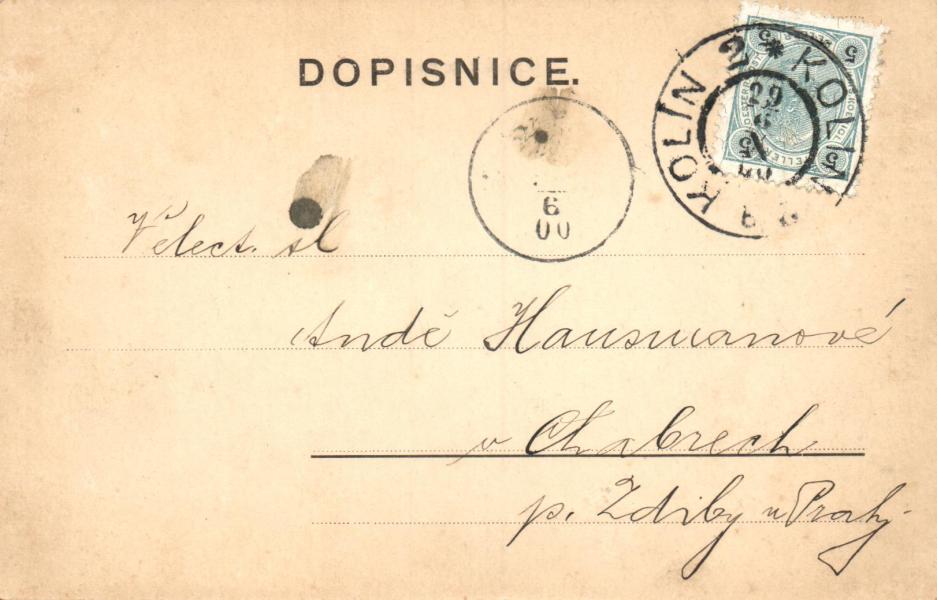 DOPISNICE.
KOLÍN 2 * KOLIN
29
6
00
5 5
5 5
6
00
Velect. sl
Andě Hausmanové
v Chabrech
p. Zdiby u Prahy